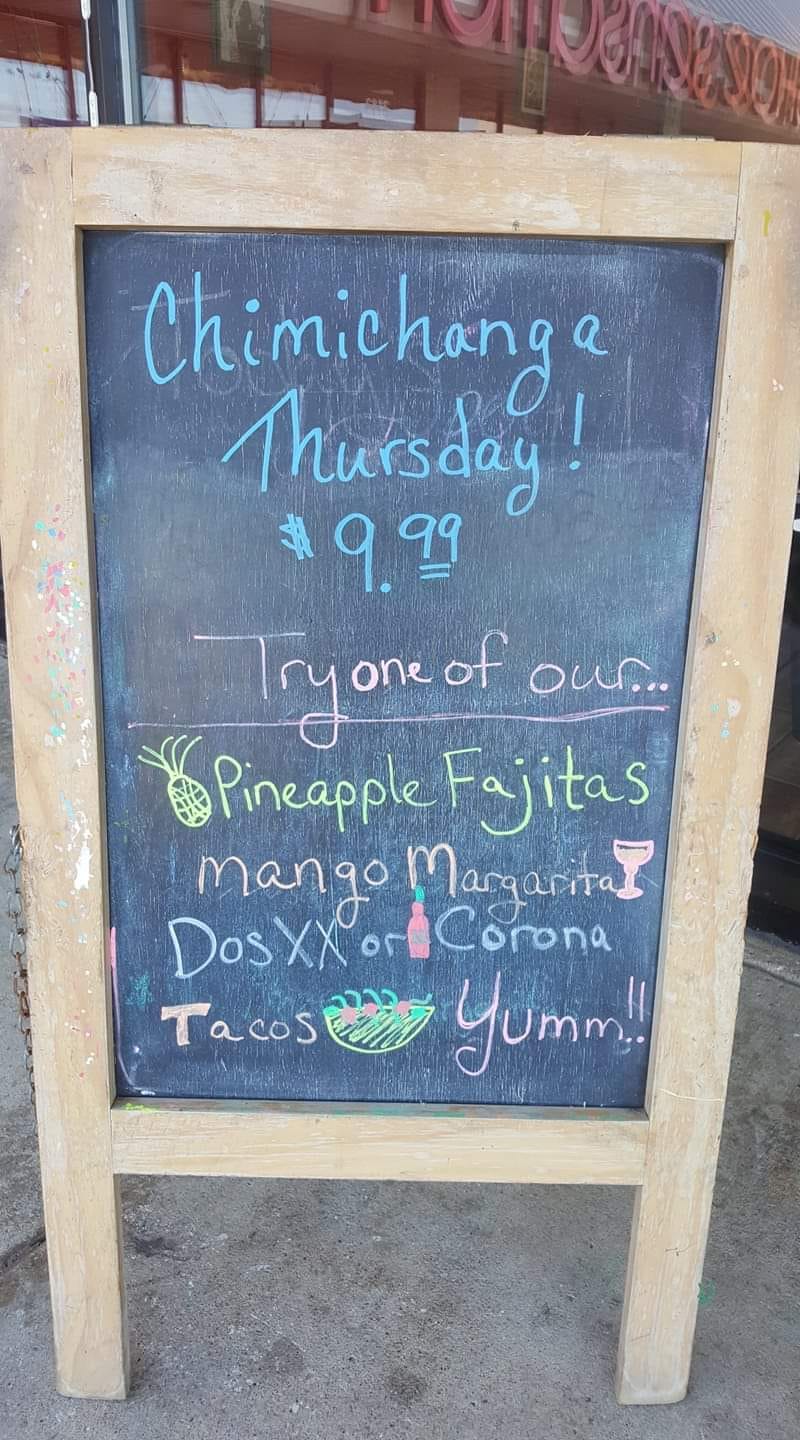 Chimichanga
Thursday!
$9.99
Try one of our...
Pineapple Fajitas
mango Margarita
Dos XX or Corona
Tacos Yumm!!